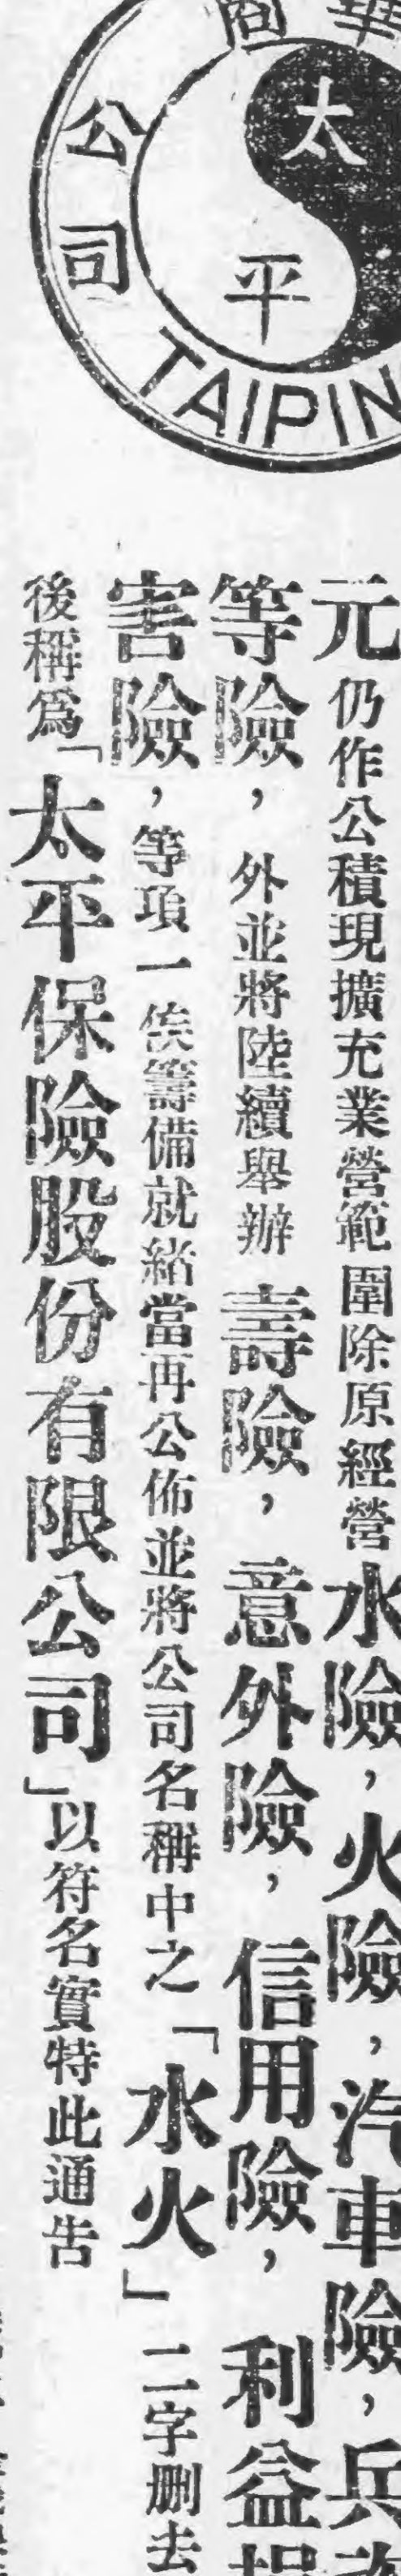 華商
太平
公司
TAIPIN
元仍作公積現擴充業營範圍除原經營水險，火險，汽車險，兵
等險，外並將陸續舉辦壽險，意外險，信用險，利益
害險，等項一俟籌備就緒當再公佈並將公司名稱中之「水火」二字刪去
後稱爲「太平保險股份有限公司」以符名實特此通告